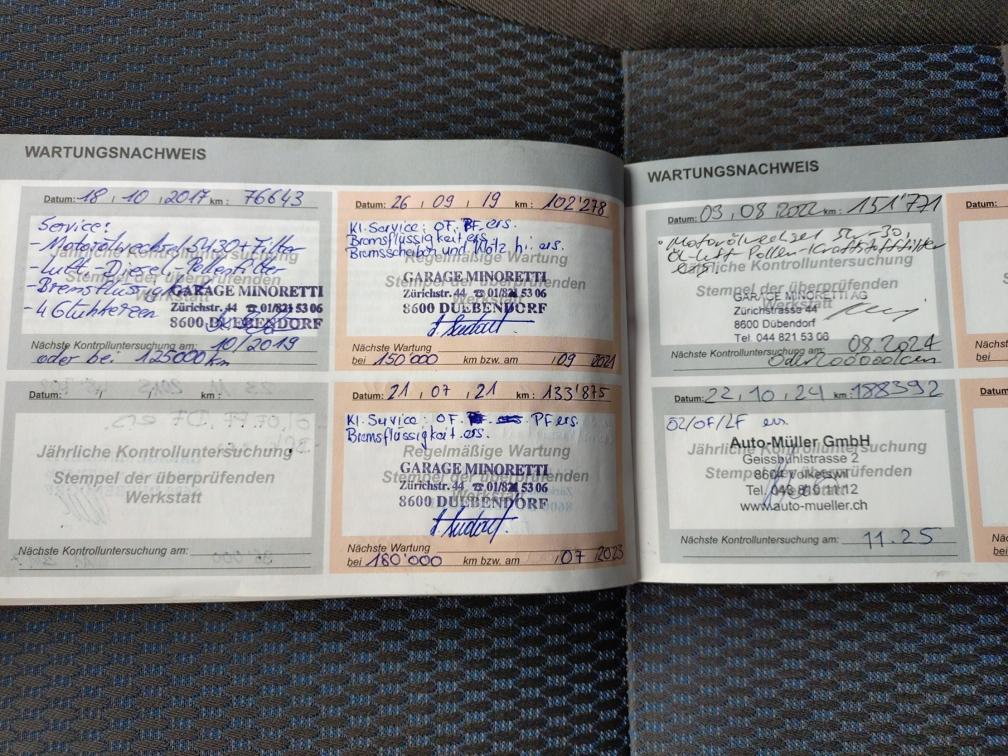 WARTUNGSNACHWEIS
Datum: 18, 10, 2017 km: 76643
Service:
- Motorölwechsel 5W30 + Filter
- Luft- Diesel- Pollenfilter
- Bremsflüss
- 4 Glühkerzen
Jährliche Kontrolluntersuchung
Stempel der überprüfenden
Werkstatt
GARAGE MINORETTI
Zürichstr. 44 ☎ 01/821 53 06
8600 DUEBENDORF
Nächste Kontrolluntersuchung am: 10/2019
oder bei 125000 km
Datum: , , km:
Jährliche Kontrolluntersuchung
Stempel der überprüfenden
Werkstatt
Nächste Kontrolluntersuchung am:
Datum: 26, 09, 19 km: 102'278
Kl. Service: OF. PF ers.
Bremsflüssigkeit ers.
Bremsscheiben und Klötz h. ers.
Regelmäßige Wartung
GARAGE MINORETTI
Zürichstr. 44 ☎ 01/821 53 06
8600 DUEBENDORF
Nächste Wartung
bei 150'000 km bzw. am , 09, 2021
Datum: 21, 07, 21 km: 133'875
Kl. Service: OF. PF ers.
Bremsflüssigkeit ers.
Regelmäßige Wartung
GARAGE MINORETTI
Zürichstr. 44 ☎ 01/821 53 06
8600 DUEBENDORF
Nächste Wartung
bei 180'000 km bzw. am , 07, 2023
WARTUNGSNACHWEIS
Datum: 03, 08, 2022 km: 151'771
Motorölwechsel 5W-30,
Öl-Luft Pollen-Kraftstofffilter
ers.
Jährliche Kontrolluntersuchung
Stempel der überprüfenden
Werkstatt
GARAGE MINORETTI AG
Zürichstrasse 44
8600 Dübendorf
Tel. 044 821 53 06
Nächste Kontrolluntersuchung am: 08.2024
Datum: 22, 10, 24 km: 188392
Ö2/OF/LF ers
Jährliche Kontrolluntersuchung
Stempel der überprüfenden
Werkstatt
Auto-Müller GmbH
Geissbühlstrasse 2
8604 Volketswil
www.auto-mueller.ch
Nächste Kontrolluntersuchung am: 11.25
Datum:
Nächste
bei
Datum:
bei